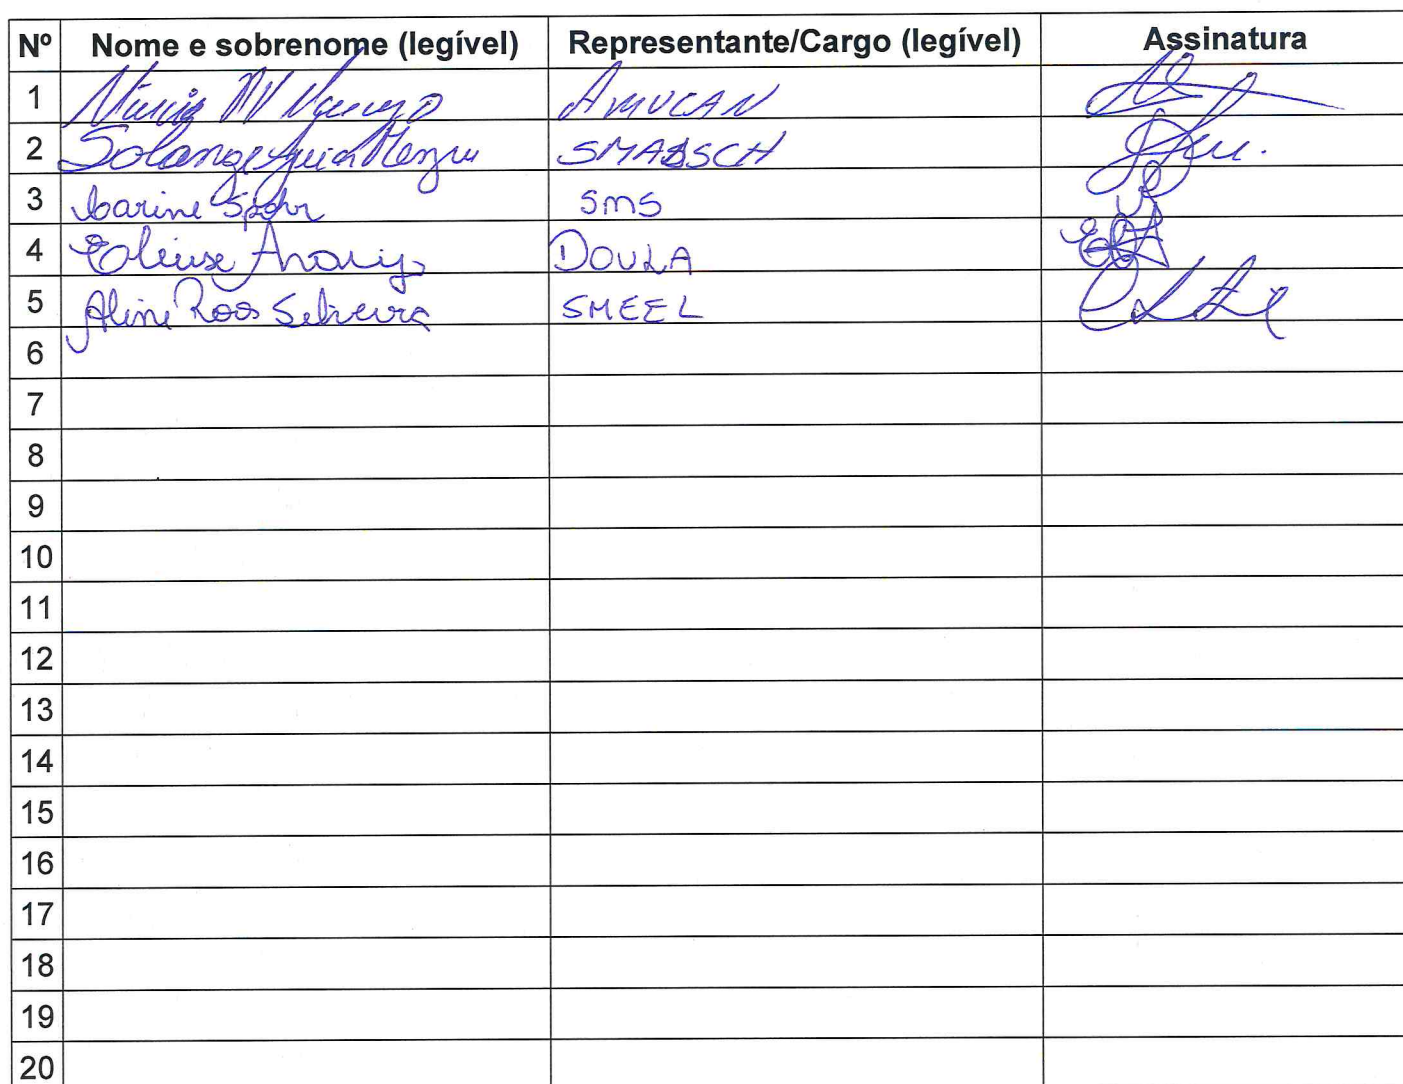 Nº Nome e sobrenome (legível) Representante/Cargo (legível) Assinatura
1 AMUCAN
2 Solange SMABSCH
3 Carine Spohr SMS
4 Araujo DOULA
5 Aline Roos Silveira SMEEL
6
7
8
9
10
11
12
13
14
15
16
17
18
19
20